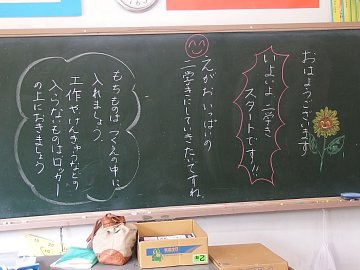 おはようございます
いよいよ二学き
スタートです!!
えがおいっぱいの
二学きにしていきたいですね。
もちものは つくえの中に
入れましょう。
工作やけんきゅうなどの
入らないものはロッカー
の上におきましょう